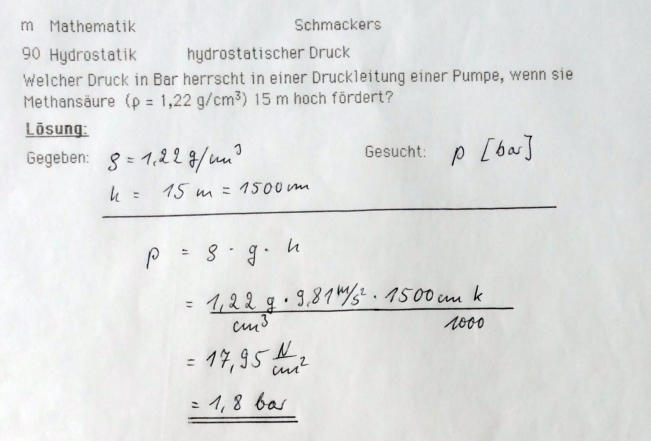 m Mathematik Schmackers
90 Hydrostatik hydrostatischer Druck
Welcher Druck in Bar herrscht in einer Druckleitung einer Pumpe, wenn sie
Methansäure (ρ = 1,22 g/cm³) 15 m hoch fördert?
Lösung:
Gegeben: ρ = 1,22 g/cm³ Gesucht: p [bar]
h = 15 m = 1500 cm
p = ρ · g · h
= 1,22 g · 9,81 m/s² · 1500 cm k
cm³ 1000
= 17,95 N/cm²
= 1,8 bar